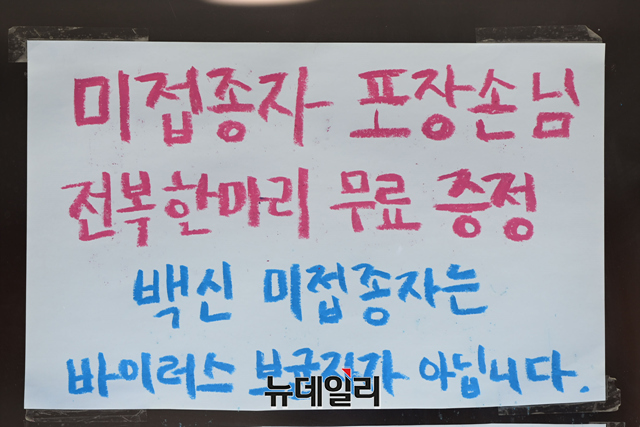 미접종자 포장손님
전복한마리 무료 증정
백신 미접종자는
바이러스 보균자가 아닙니다.
뉴데일리